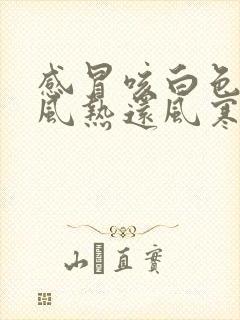 感冒咳白色
風熱還風寒
山直實